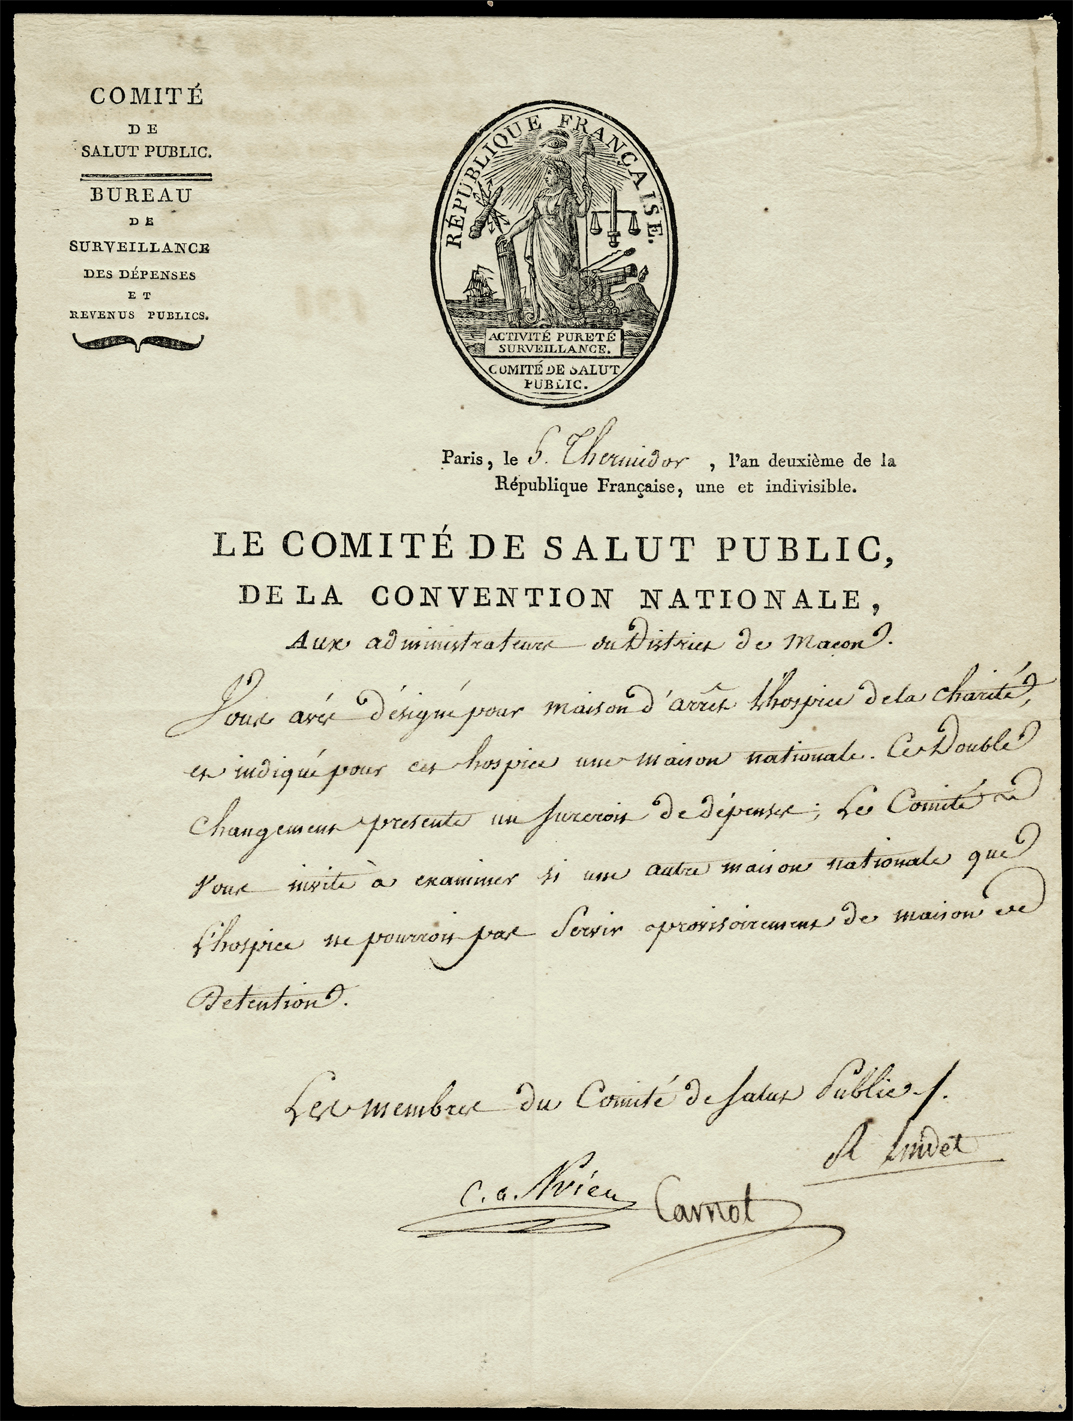 COMITÉ
DE
SALUT PUBLIC.
BUREAU
DE
SURVEILLANCE
DES DÉPENSES
ET
REVENUS PUBLICS.
RÉPUBLIQUE FRANÇAISE.
ACTIVITÉ PURETÉ
SURVEILLANCE.
COMITÉ DE SALUT
PUBLIC.
Paris, le 6. Thermidor, l'an deuxième de la
République Française, une et indivisible.
LE COMITÉ DE SALUT PUBLIC,
DE LA CONVENTION NATIONALE,
Aux administrateurs du District de Macon.
Vous avés désigné pour maison d'arrêt l'hospice de la charité,
et indiqué pour cet hospice une maison nationale. Ce Double
changement presente un surcroit de dépenses; Le Comité
vous invite à examiner si une autre maison nationale que
l'hospice ne pourroit pas Servir provisoirement de maison de
Detention.
Les membres du Comité de Salut Public
R Lindet
C. a. Prieur
Carnot